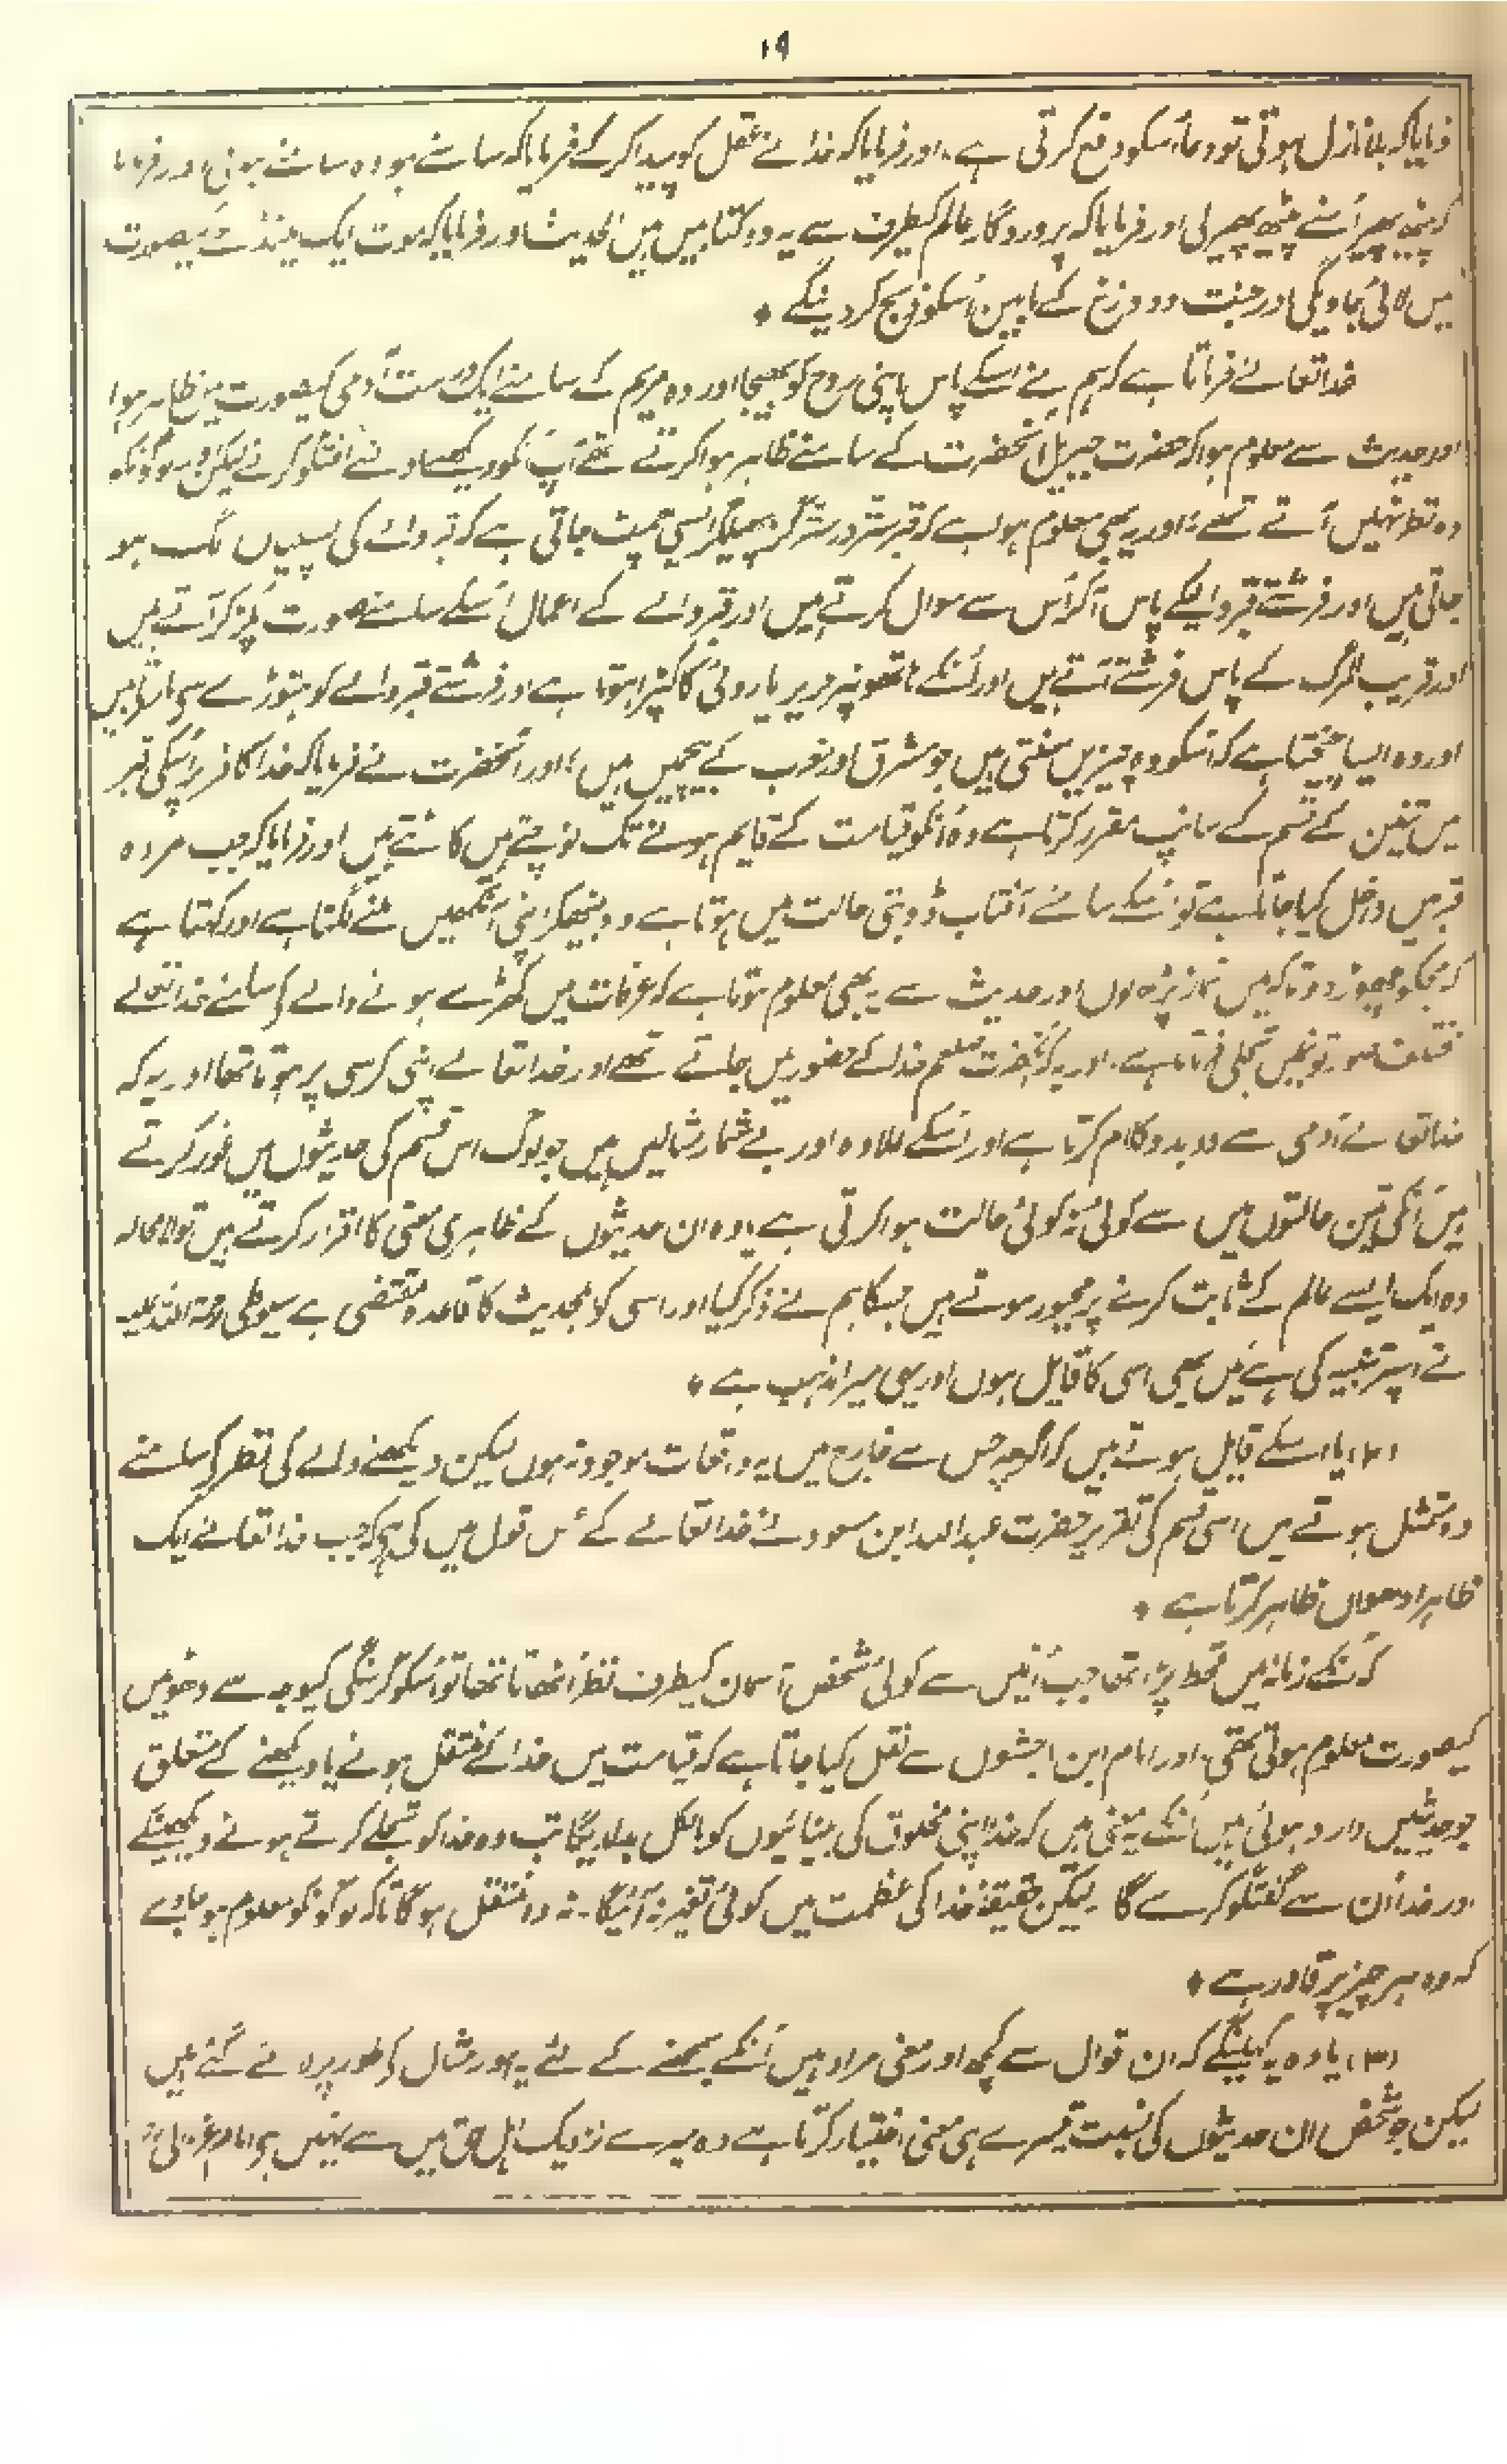 ۱۹
فرمایا کہ بلا نازل ہوتی تو دعا اُسکو دفع کرتی ہے۔ اور فرمایا کہ خدا نے عقل کو پیدا کر کے فرمایا کہ سامنے ہو وہ سامنے ہوئی اور فرمایا
کہ پیٹھ پھیر اُسنے پیٹھ پھیر لی اور فرمایا کہ پروردگار عالم کیطرف سے یہ دو کتابیں ہیں الحدیث اور فرمایا کہ موت ایک مینڈھے کیصورت
میں لائی جاویگی اور جنت و دوزخ کے مابین اُسکو ذبح کر دینگے *
خدا تعالے فرماتا ہے کہ ہم نے اسکے پاس اپنی روح کو بھیجا اور وہ مریم کے سامنے ایک درست آدمی کیصورت میں ظاہر ہوا
اور حدیث سے معلوم ہوا کہ حضرت جبریل آنحضرت کے سامنے ظاہر ہوا کرتے تھے آپ انکو دیکھتے اور اُنسے گفتگو کرتے لیکن اور لوگونکو
وہ نظر نہیں آتے تھے اور یہ بھی معلوم ہوا ہے کہ قبر ستر در ستر گز پھیلکر ایسی چمٹ جاتی ہے کہ قبر والے کی پسلیاں الگ ہو
جاتی ہیں اور فرشتے قبر والیکے پاس آکر اُس سے سوال کرتے ہیں اور قبر والے کے اعمال اُسکے سامنے صورت پکڑ کر آتے ہیں
اور قریب المرگ کے پاس فرشتے آتے ہیں اور اُنکے ہاتھونپر حریر یا روئی کا کپڑا ہوتا ہے اور فرشتے قبر والے کو ہتوڑے سے مارتے ہیں
اور وہ ایسا چیختا ہے کہ اُسکو وہ چیزیں سنتی ہیں جو مشرق اور مغرب کے بیچمیں ہیں اور آنحضرت نے فرمایا کہ خدا کافر پر اُسکی قبر
میں تنین کے قسم کے سانپ مقرر کرتا ہے وہ اُنکو قیامت کے قایم ہونے تک نوچتے ہیں کاٹتے ہیں اور فرمایا کہ جب مردہ
قبر میں داخل کیا جاتا ہے تو اُسکے سامنے آفتاب ڈوبتی حالت میں ہوتا ہے وہ بیٹھکر اپنی آنکھیں ملنے لگتا ہے اور کہتا ہے
کہ مجکو چھوڑ دو تا کہ میں نماز پڑھ لوں اور حدیث سے یہ بھی معلوم ہوتا ہے کہ عرفات میں کھڑے ہونے والے کے سامنے خدا تعالے
مختلف صورتونمیں تجلی فرماتا ہے۔ اور یہ کہ آنحضرت صلعم خدا کے حضور میں جاتے تھے اور خدا تعالے اپنی کرسی پر ہوتا تھا اور یہ کہ
خدا تعالے آدمی سے دوبدو کلام کرتا ہے اور اسکے علاوہ اور بے شمار مثالیں ہیں جو لوگ اس قسم کی حدیثوں میں غور کرتے
ہیں اُنکی تین حالتوں میں سے کوئی نہ کوئی حالت ہوا کرتی ہے یا وہ ان حدیثوں کے ظاہری معنی کا اقرار کرتے ہیں تو لامحالہ
وہ ایک ایسے عالم کے ثابت کرنے پر مجبور ہوتے ہیں جسکا ہم نے ذکر کیا اور اسی کو اہلحدیث کا قاعدہ مقتضی ہے سیوطی رحمۃ اللہ علیہ
نے اسپر تنبیہ کی ہے میں بھی اسی کا قایل ہوں اور یہی میرا مذہب ہے *
(۲) یا اسکے قایل ہوتے ہیں کہ اگرچہ حس سے خارج میں یہ واقعات موجود نہ ہوں لیکن دیکھنے والے کی نظر کے سامنے
وہ متمثل ہوتے ہیں اسی قسم کی تقریر حضرت عبداللہ ابن مسعود نے خدا تعالے کے اس قول میں کی ہے کہ جب خدا تعالے ایک
ظاہرا دھواں ظاہر کرتا ہے *
کہ اُنکے زمانہ میں قحط پڑا تھا جب اُنمیں سے کوئی شخص آسمان کیطرف نظر اُٹھاتا تھا تو اُسکو گرسنگی کیوجہ سے دھوئیں
کیصورت معلوم ہوتی تھی، اور امام ابن ماجشوں سے نقل کیا جاتا ہے کہ قیامت میں خدا کے منتقل ہونے یا دیکھنے کے متعلق
جو حدیثیں وارد ہوئی ہیں اُنکے یہ معنی ہیں کہ خدا اپنی مخلوق کی بینائیوں کو بالکل بدلدیگا تب وہ خدا کو تجلے کرتے ہوئے دیکھینگے
اور خدا اُن سے گفتگو کرے گا۔ لیکن حقیقۃً خدا کی عظمت میں کوئی تغیر نہ آئیگا۔ نہ وہ منتقل ہوگا تا کہ لوگونکو معلوم ہو جاوے
کہ وہ ہر چیز پر قادر ہے *
(۳) یا وہ یہ کہینگے کہ ان اقوال سے کچھ اور معنی مراد ہیں اُنکے سمجھنے کے لئے یہ امور مثال کے طور پر لائے گئے ہیں
لیکن جو شخص ان حدیثوں کی نسبت تیسرے ہی معنی اختیار کرتا ہے وہ میرے نزدیک اہل حق میں سے نہیں ہے امام غزالی رح